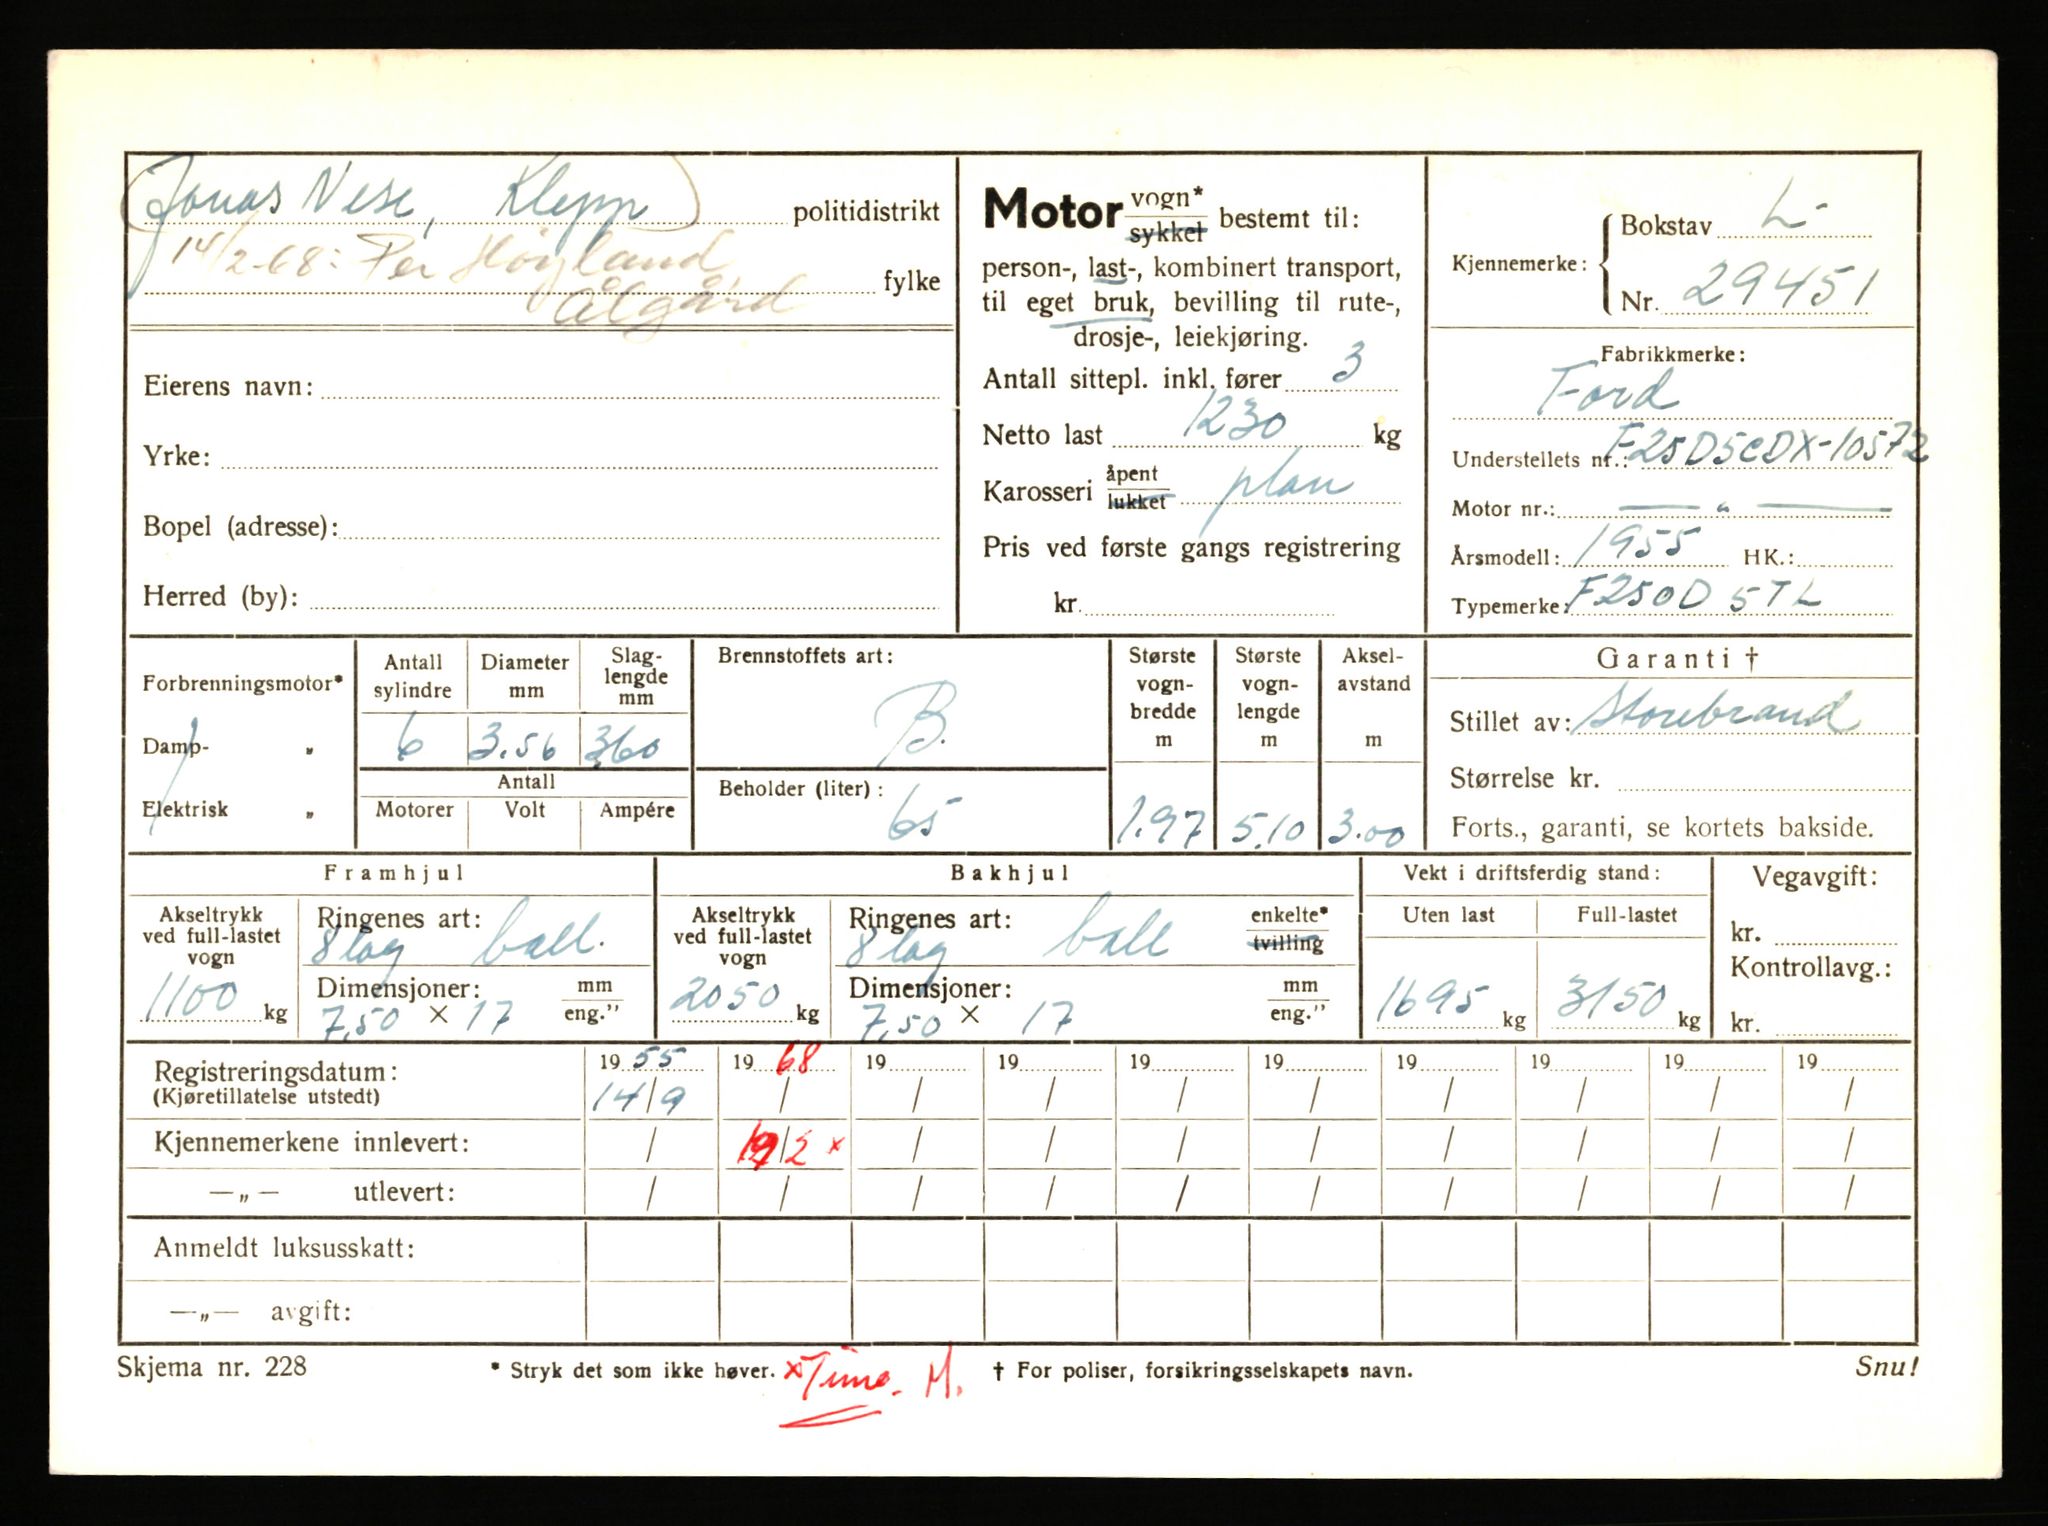 Jonas Nese, Klepp politidistrikt
14/2-68: Per Høyland, fylke
Ålgård
Eierens navn:
Yrke:
Bopel (adresse):
Herred (by):
Motor vogn* / sykkel bestemt til:
person-, last-, kombinert transport,
til eget bruk, bevilling til rute-,
drosje-, leiekjøring.
Antall sittepl. inkl. fører 3
Netto last 1230 kg
Karosseri åpent / lukket plan
Pris ved første gangs registrering
kr.
Kjennemerke: Bokstav L-
Nr. 29451
Fabrikkmerke:
Ford
Understellets nr.: F25D5CDX-10572
Motor nr.: — " —
Årsmodell: 1955 HK.:
Typemerke: F250D 5TL
Forbrenningsmotor*
Damp- „
Elektrisk „
Antall sylindre Diameter mm Slag-lengde mm
6 3.56 360
Antall
Motorer Volt Ampére
Brennstoffets art:
B.
Beholder (liter):
65
Største vogn-bredde m Største vogn-lengde m Aksel-avstand m
1.97 5.10 3.00
Garanti †
Stillet av: Storebrand
Størrelse kr.
Forts., garanti, se kortets bakside.
Framhjul
Akseltrykk ved full-lastet vogn
1100 kg
Ringenes art:
8 lag ball.
Dimensjoner: mm / eng."
7,50 × 17
Bakhjul
Akseltrykk ved full-lastet vogn
2050 kg
Ringenes art: enkelte* / tvilling
8 lag ball
Dimensjoner: mm / eng."
7,50 × 17
Vekt i driftsferdig stand:
Uten last Full-lastet
1695 kg 3150 kg
Vegavgift:
kr.
Kontrollavg.:
kr.
Registreringsdatum: 19 55 19 68 19 19 19 19 19 19 19 19
(Kjøretillatelse utstedt) 14/9 / / / / / / / / /
Kjennemerkene innlevert: / /2 × / / / / / / / /
—„— utlevert: / / / / / / / / / /
Anmeldt luksusskatt:
—„— avgift:
Skjema nr. 228 * Stryk det som ikke høver. × Time. M. † For poliser, forsikringsselskapets navn. Snu!